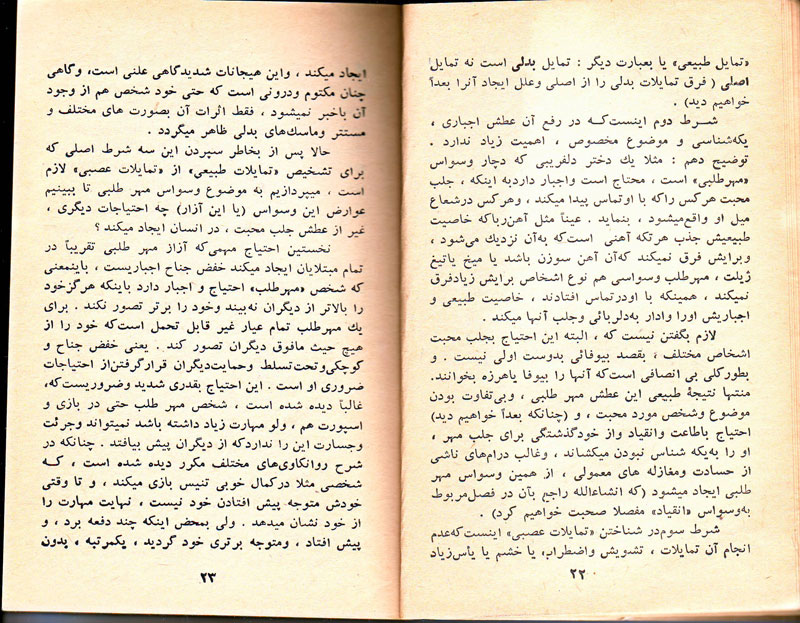 «تمایل طبیعی» یا بعبارت دیگر : تمایل بدلی است نه تمایل
اصلی ( فرق تمایلات بدلی را از اصلی وعلل ایجاد آنرا بعداً
خواهیم دید) .
شرط دوم اینست‌کـه در رفع آن عطش اجباری ،
یکه‌شناسی و موضوع مخصوص ، اهمیت زیاد ندارد .
توضیح دهم : مثلا یك دختر دلفریبی که دچار وسواس
«مهرطلبی» است ، محتاج است واجبار داردبه اینکه ، جلب
محبت هرکس راکه با اوتماس پیدا میکند ، وهرکس درشعاع
میل او واقع‌میشود ، بنماید . عیناً مثل آهن‌رباکه خاصیت
طبیعیش جذب هرتکه آهنی است‌که به‌آن نزدیك می‌شود ،
وبرایش فرق نمیکند که‌آن آهن سوزن باشد یا میخ یاتیغ
ژیلت ، مهرطلب وسواسی هم نوع اشخاص برایش زیادفرق
نمیکند ، همینکه با اودرتماس افتادند ، خاصیت طبیعی و
اجباریش اورا وادار به‌دلربائی وجلب آنها میکند .
لازم بگفتن نیست که ، البته این احتیاج بجلب محبت
اشخاص مختلف ، بقصد بیوفائی بدوست اولی نیست . و
بطورکلی بی انصافی است‌که آنها را بیوفا یاهرزه بخوانند.
منتها نتیجهٔ طبیعی این عطش مهر طلبی ، وبی‌تفاوت بودن
موضوع وشخص مورد محبت ، و (چنانکه بعداً خواهیم دید)
احتیاج باطاعت وانقیاد واز خودگذشتگی برای جلب مهر ،
او را به‌یکه شناس نبودن میکشاند ، وغالب درام‌های ناشی
از حسادت ومغازله های معمولی ، از همین وسواس مهر
طلبی ایجاد میشود (که انشاءالله راجع بآن در فصل‌مربوط
به‌وسواس «انقیاد» مفصلا صحبت خواهیم کرد) .
شرط سوم‌در شناختن «تمایلات عصبی» اینست‌که‌عدم
انجام آن تمایلات ، تشویش واضطراب، یا خشم یا یأس‌زیاد
۲۲
ایجاد میکند ، واین هیجانات شدیدگاهی علنی است، وگاهی
چنان مکتوم ودرونی است که حتی خود شخص هم از وجود
آن باخبر نمیشود ، فقط اثرات آن بصورت های مختلف و
مستتر وماسك‌های بدلی ظاهر میگردد .
حالا پس از بخاطر سپردن این سه شرط اصلی که
برای تشخیص «تمایلات طبیعی» از «تمایلات عصبی» لازم
است ، میپردازیم به موضوع وسواس مهر طلبی تا ببینیم
عوارض این وسواس (یا این آزار) چه احتیاجات دیگری ،
غیر از عطش جلب محبت ، در انسان ایجاد میکند ؟
نخستین احتیاج مهمی‌که آزاز مهر طلبی تقریباً در
تمام مبتلایان ایجاد میکند خفض جناح اجباریست ، باینمعنی
که شخص «مهرطلب» احتیاج و اجبار دارد باینکه هرگزخود
را بالاتر از دیگران نه‌بیند وخود را برتر تصور نکند . برای
یك مهرطلب تمام عیار غیر قابل تحمل است‌که خود را از
هیچ حیث مافوق دیگران تصور کند . یعنی خفض جناح و
کوچکی‌وتحت‌تسلط وحمایت‌دیگران قرارگرفتن‌از احتیاجات
ضروری او است . این احتیاج بقدری شدید وضروریست‌که،
غالباً دیده شده است ، شخص مهر طلب حتی در بازی و
اسپورت هم ، ولو مهارت زیاد داشته باشد نمیتواند وجرئت
وجسارت این را نداردکه از دیگران پیش بیافتد . چنانکه در
شرح روانکاوی‌های مختلف مکرر دیده شده است ، کـه
شخصی مثلا درکمال خوبی تنیس بازی میکند ، و تا وقتی
خودش متوجه پیش افتادن خود نیست ، نهایت مهارت را
از خود نشان میدهد . ولی بمحض اینکه چند دفعه برد ، و
پیش افتاد ، ومتوجه برتری خود گردید ، یکمرتبه ، بدون
۲۳